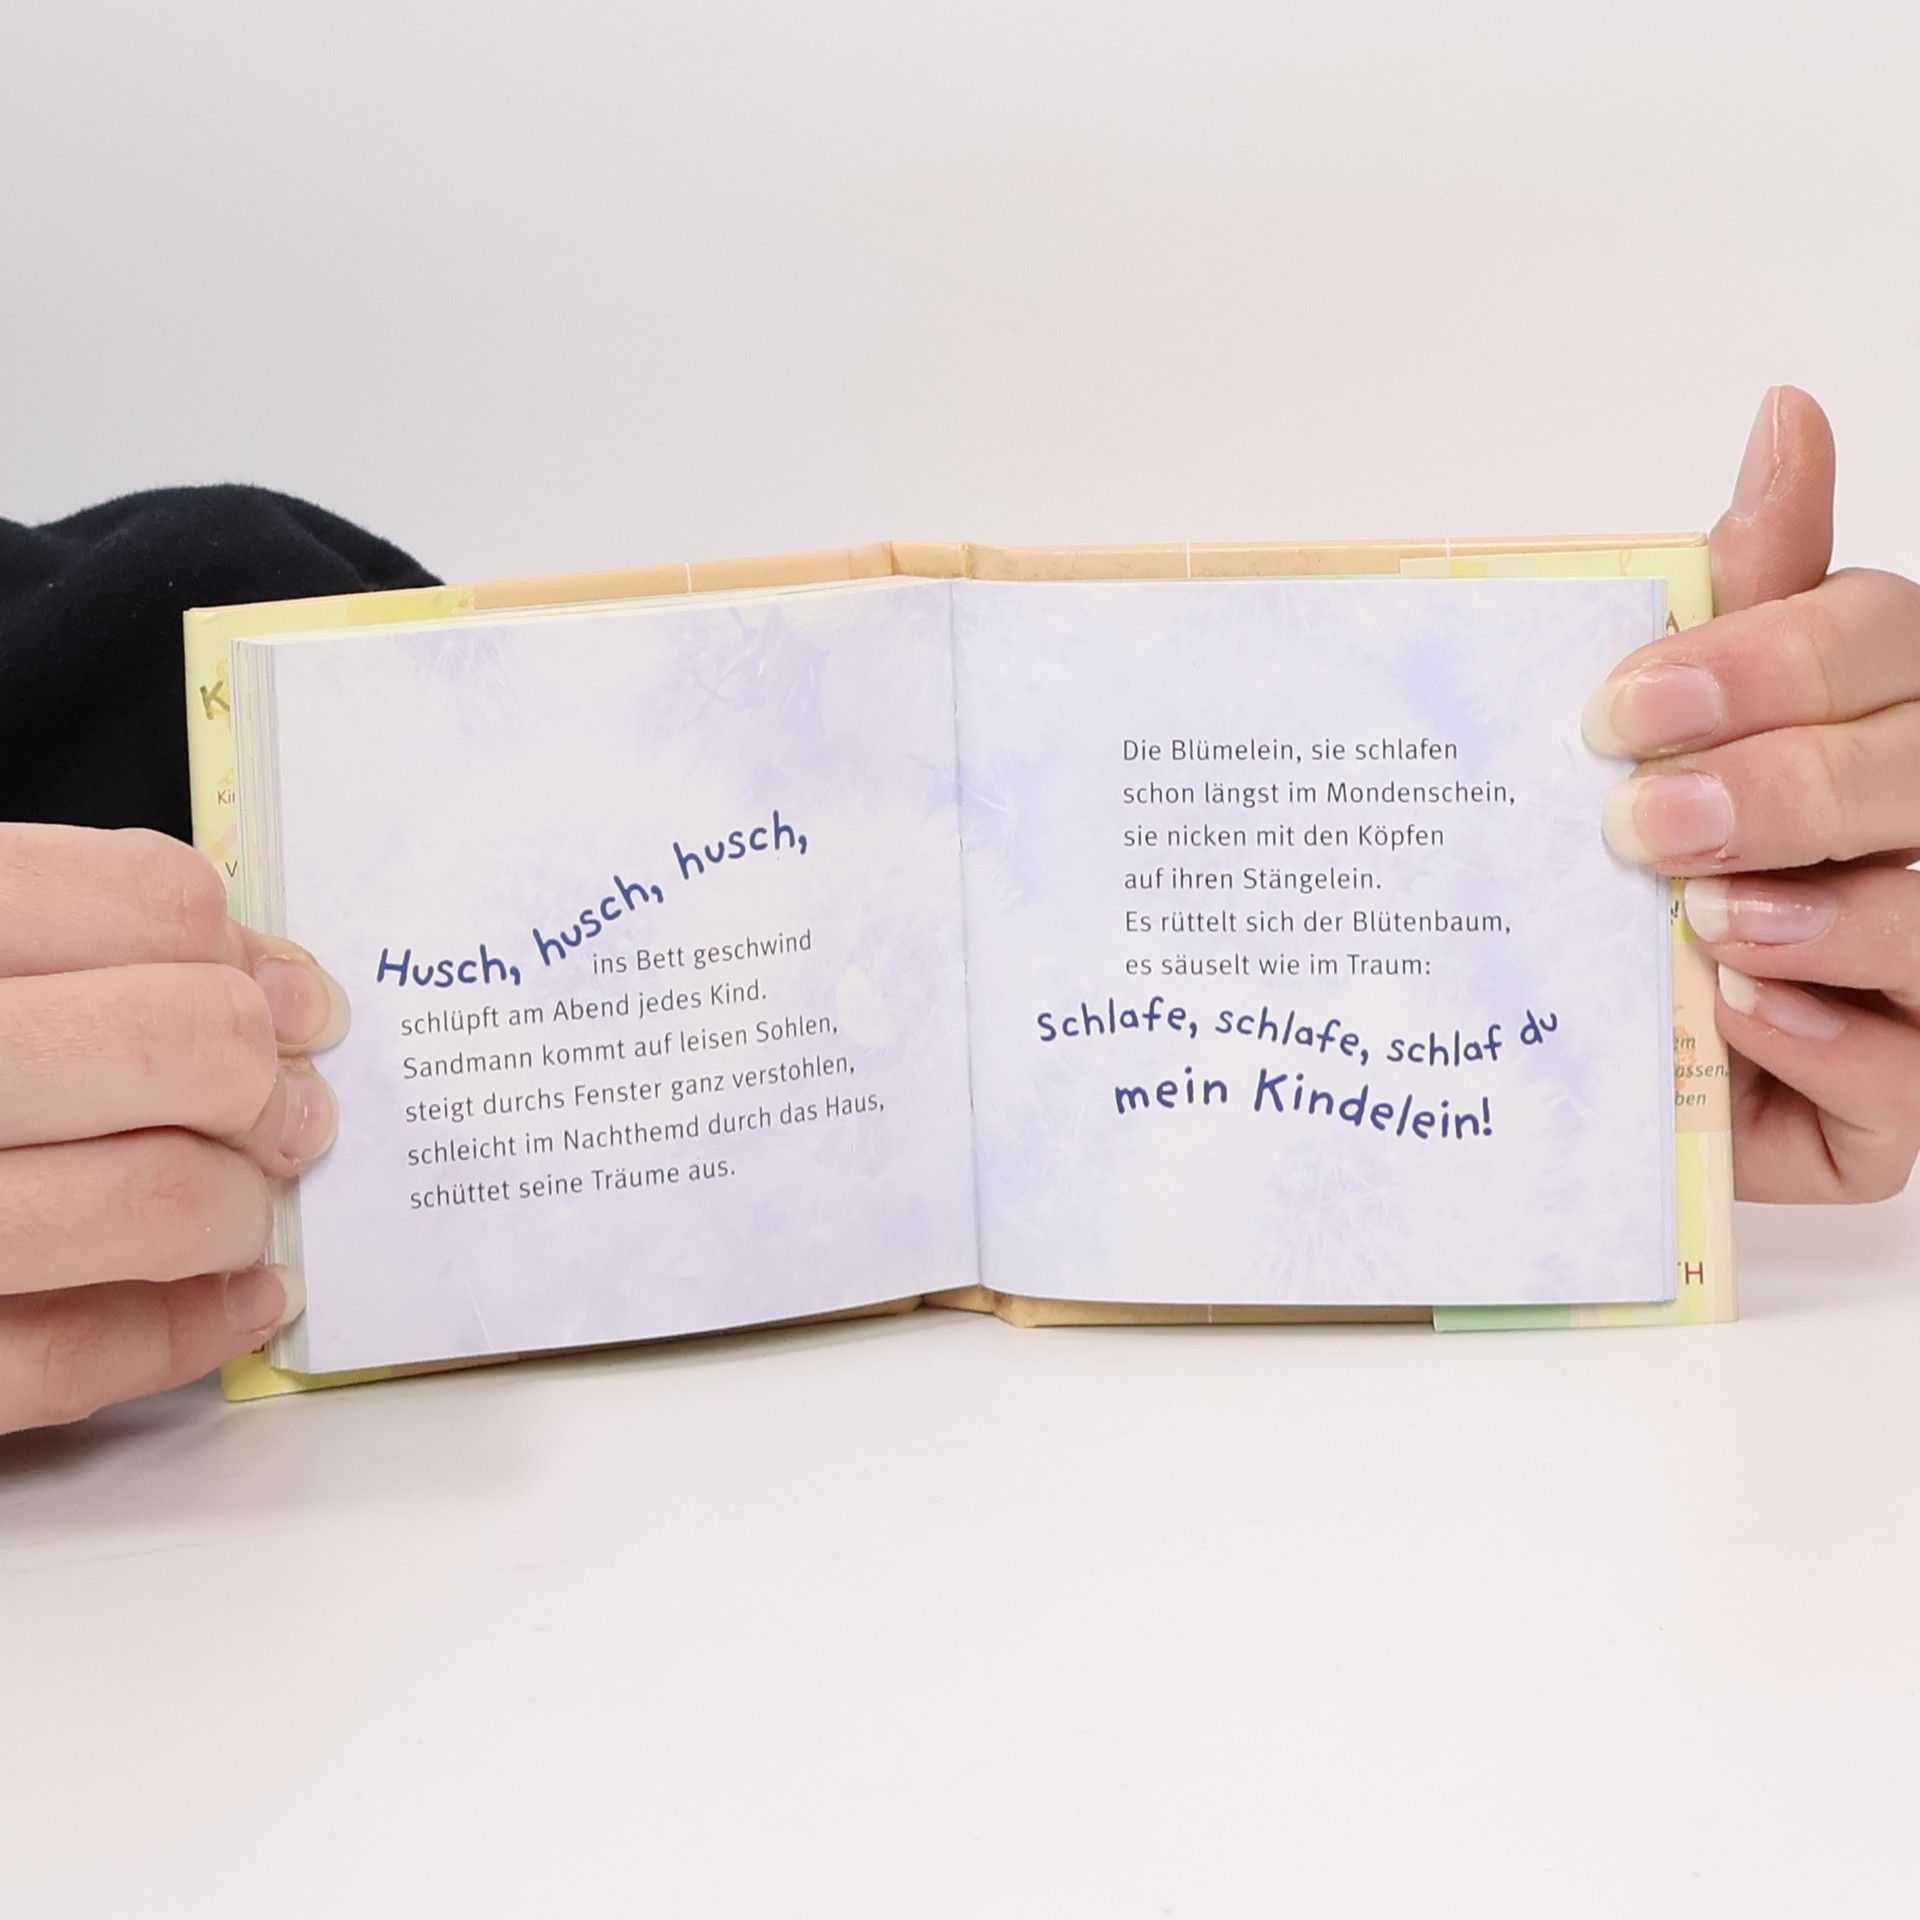 Husch, husch, husch,
ins Bett geschwind
schlüpft am Abend jedes Kind.
Sandmann kommt auf leisen Sohlen,
steigt durchs Fenster ganz verstohlen,
schleicht im Nachthemd durch das Haus,
schüttet seine Träume aus.
Die Blümelein, sie schlafen
schon längst im Mondenschein,
sie nicken mit den Köpfen
auf ihren Stängelein.
Es rüttelt sich der Blütenbaum,
es säuselt wie im Traum:
Schlafe, schlafe, schlaf du
mein Kindelein!